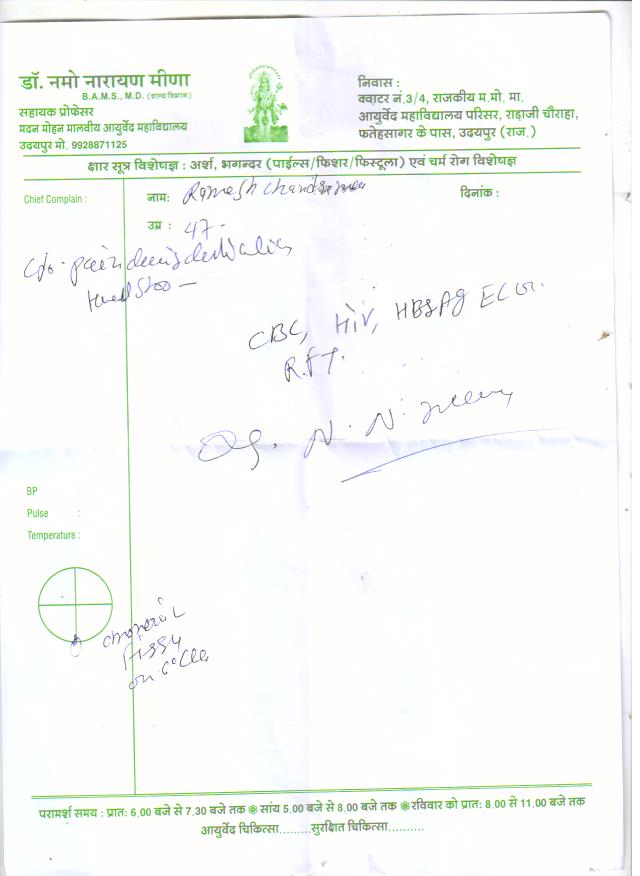 डॉ. नमो नारायण मीणा
B.A.M.S., M.D. (शल्य विभाग)
सहायक प्रोफेसर
मदन मोहन मालवीय आयुर्वेद महाविद्यालय
उदयपुर मो. 9928871125
निवास :
क्वाटर नं.3/4, राजकीय म.मो. मा.
आयुर्वेद महाविद्यालय परिसर, राहाजी चौराहा,
फतेहसागर के पास, उदयपुर (राज.)
क्षार सूत्र विशेषज्ञ : अर्श, भगन्दर (पाईल्स/फिशर/फिस्टूला) एवं चर्म रोग विशेषज्ञ
Chief Complain :
नाम: Ramesh chandra
दिनांक :
उम्र : 47
C/o - pain
Hard Stoo -
CBC, HIV, HBSAg ECG.
R.F.T.
Dr. N. N.
BP
Pulse :
Temperature :
chronic
fissu
on 6° Clo
परामर्श समय : प्रातः 6.00 बजे से 7.30 बजे तक सांय 5.00 बजे से 8.00 बजे तक रविवार को प्रातः 8.00 से 11.00 बजे तक
आयुर्वेद चिकित्सा.........सुरक्षित चिकित्सा..........